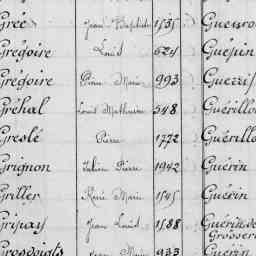 Grée Jean Baptiste 1531
Grégoire Louis 624 Guépin
Grégoire Pierre Marie 993
Gréhal Louis Mathurin 548 Guérillo
Greslé Pierre 1772 Guérillo
Grignon Julien Pierre 1942 Guérin
Griller René Marie 1545 Guérin
Gripay Jean Louis 1588 Guérin de
Grosserr
Grosdoigts Jean Marie 933 Guérin